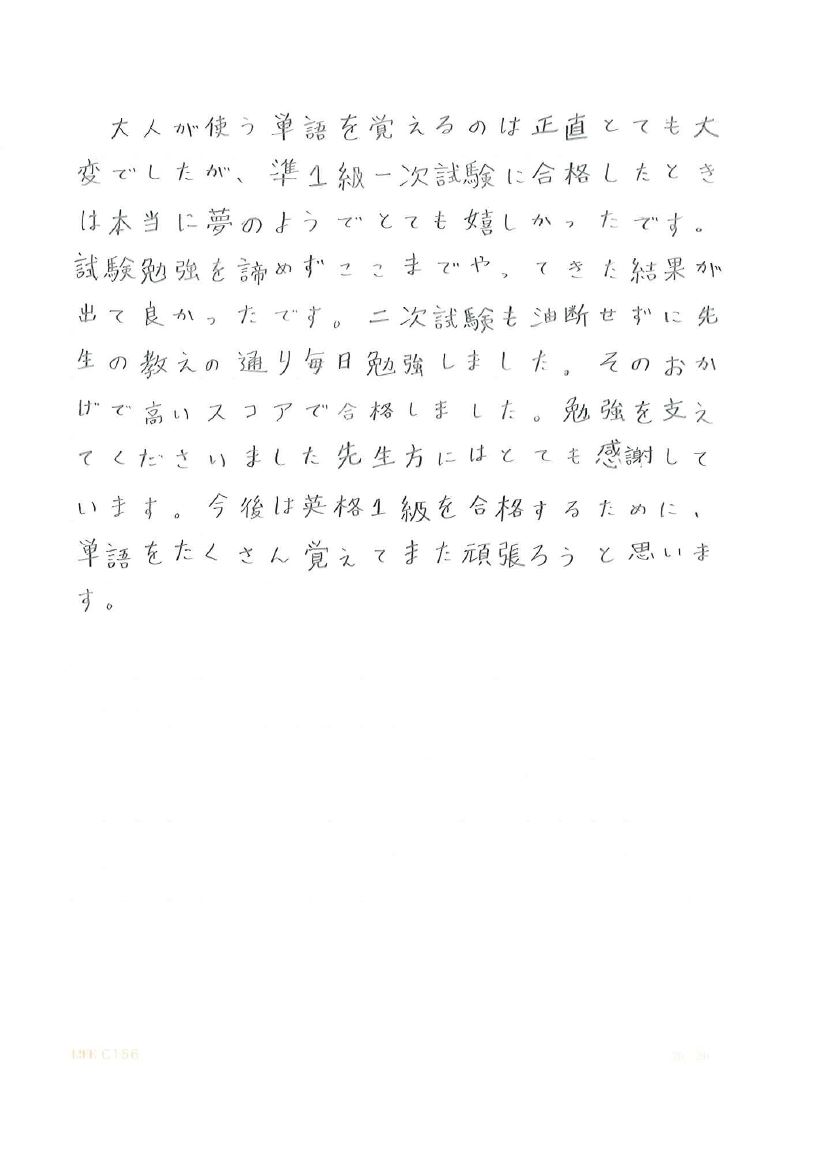 大人が使う単語を覚えるのは正直とても大
変でしたが、準1級一次試験に合格したとき
は本当に夢のようでとても嬉しかったです。
試験勉強を諦めずここまでやってきた結果が
出て良かったです。二次試験も油断せずに先
生の教えの通り毎日勉強しました。そのおか
げで高いスコアで合格しました。勉強を支え
てくださいました先生方にはとても感謝して
います。今後は英格1級を合格するために、
単語をたくさん覚えてまた頑張ろうと思いま
す。
LIFE C156
20 20